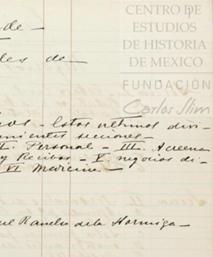 CENTRO DE
ESTUDIOS
DE HISTORIA
DE MEXICO
FUNDACIÓN
Carlos Slim
de -
les de
- Estos ultimos divi-
secciones -
Personal - III. Acreen-
y Recibos - V negocios di-
VI Marina -
Rancho de la Hormiga -